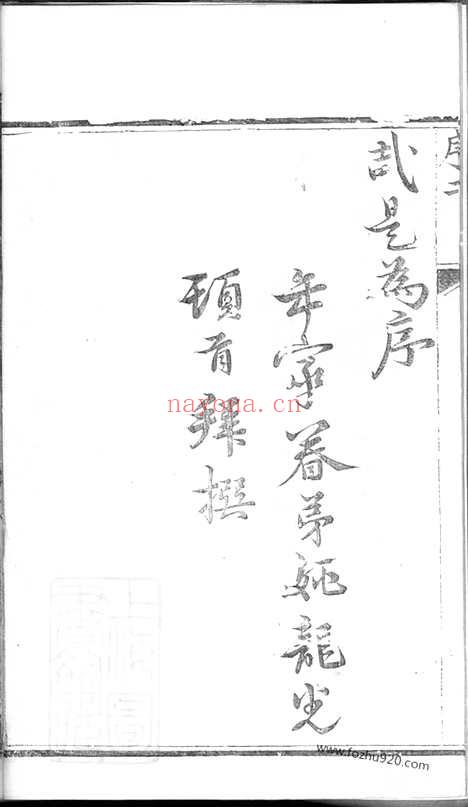 哉是為序
年家眷弟姚龍光
頓首拜撰
序二
nayona.cn
www.fozhu920.com